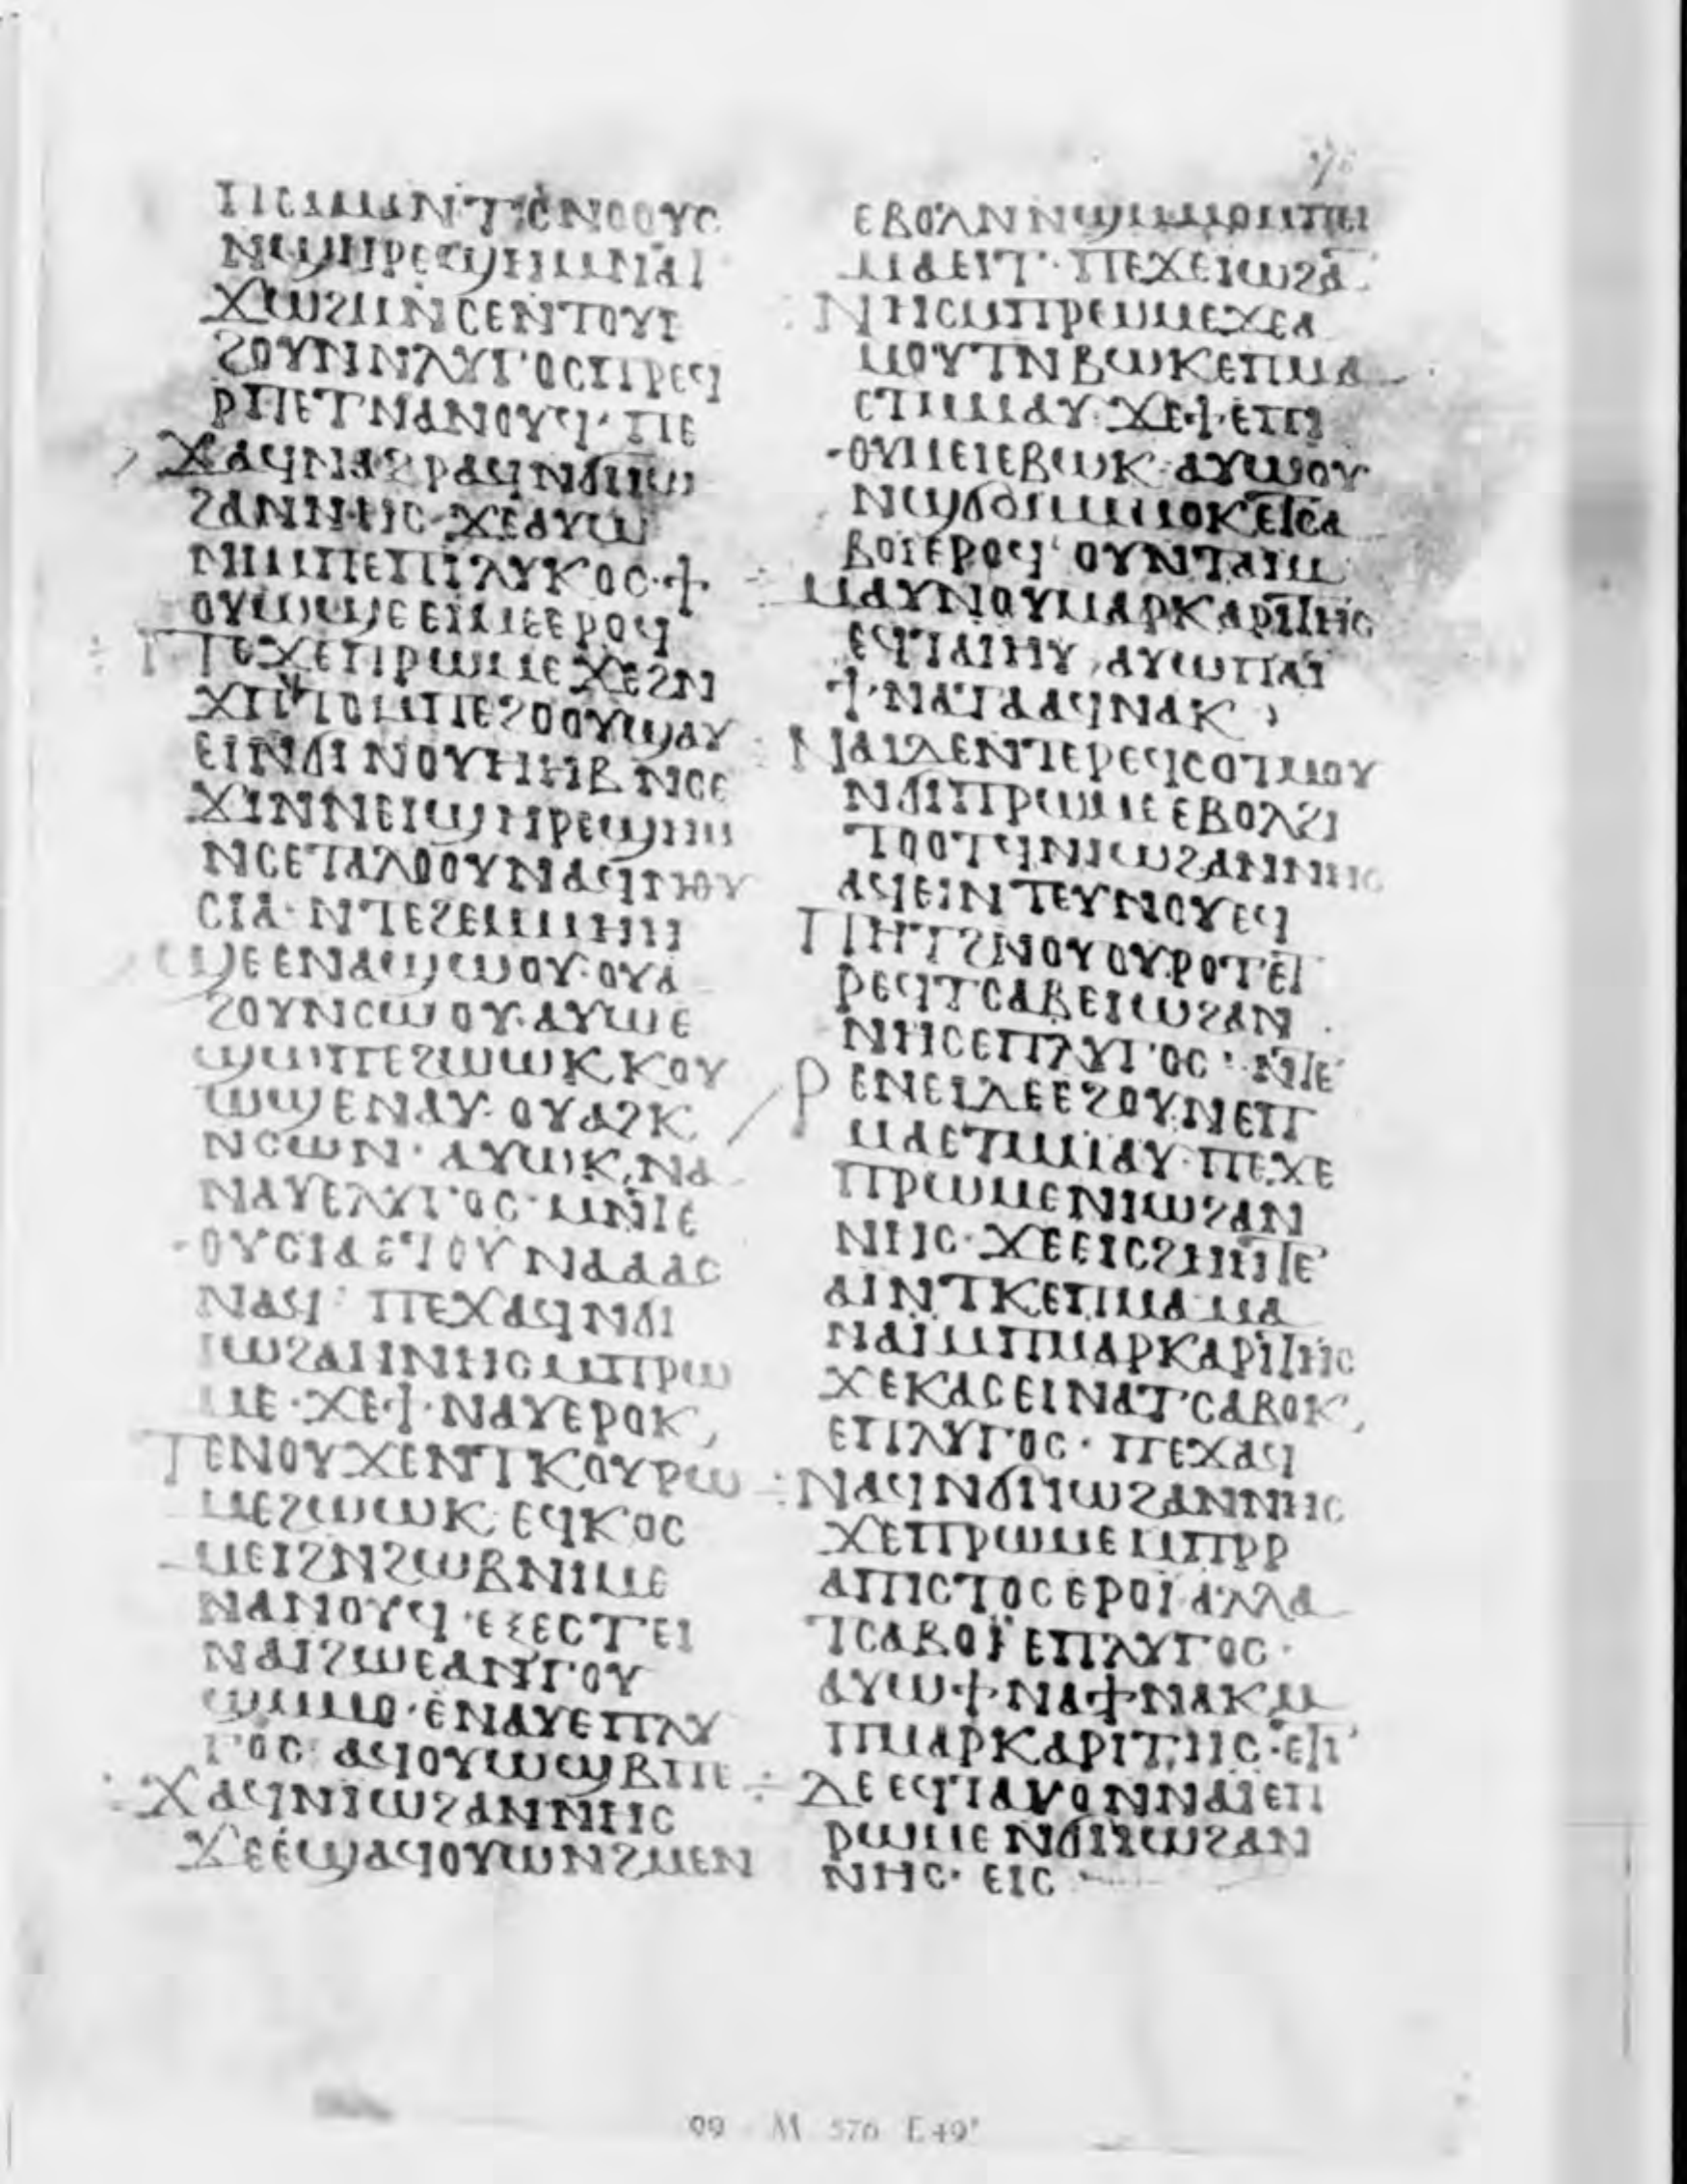 ⲠⲈⲘⲚⲦⲤⲚⲞⲞⲨⲤ
ⲚϢⲎⲢⲈϢⲎⲘⲚⲀⲓ
ϪⲰϨⲘⲚⲤⲈⲚⲦⲞⲨⲈ
ϨⲞⲨⲚⲚⲖⲨⲄⲞⲤⲠⲢⲈϤ
ⲢⲠⲈⲦⲚⲀⲚⲞⲨϤ· ⲠⲈ
ϪⲀϤⲚⲀϨⲢⲀϤⲚϬⲒⲒⲰ
ϨⲀⲚⲚⲎⲤ·ϪⲈⲀⲨⲰ
ⲚⲒⲘⲠⲈⲠⲒⲖⲨⲔⲞⲤ·ϯ
ⲞⲨⲰϢⲈⲈⲒⲘⲈⲈⲢⲞϤ
ⲠⲈϪⲈⲠⲢⲰⲘⲈϪⲈϨⲚ
ϪⲠⲯⲦⲞⲘⲠⲈϨⲞⲞⲨϢⲀⲨ
ⲈⲒⲚϬⲒⲚⲞⲨⲎⲎⲂⲚⲤⲈ
ϪⲒⲚⲚⲈⲒϢⲎⲢⲈϢⲎⲘ
ⲚⲤⲈⲦⲀⲖⲞⲞⲨⲚⲀϤⲚⲐⲨ
ⲤⲒⲀ· ⲚⲦⲈϨⲈⲘⲘⲎⲎ
ϢⲈⲈⲚⲀϢⲰⲞⲨ·ⲞⲨⲀ
ϨⲞⲨⲚⲤⲰⲞⲨ·ⲀⲨⲰⲈ
ϢⲰⲠⲈϨⲰⲰⲔⲔⲞⲨ
ⲰϢⲈⲚⲀⲨ· ⲞⲨⲀϨⲔ
ⲚⲤⲰⲚ· ⲀⲨⲰⲔⲚⲀ
ⲚⲀⲨⲈⲖⲨⲄⲞⲤ· ⲘⲚⲦⲈ
ⲐⲨⲤⲒⲀⲈⲦⲞⲨⲚⲀⲀⲀⲤ
ⲚⲀϤ· ⲠⲈϪⲀϤⲚϬⲒ
ⲒⲰϨⲀⲚⲚⲎⲤⲘⲠⲢⲰ
ⲘⲈ·ϪⲈϯⲚⲀⲨⲈⲢⲞⲔ
ⲦⲈⲚⲞⲨϪⲈⲚⲦⲔⲞⲨⲢⲰ
ⲘⲈϨⲰⲰⲔ ⲈϤⲔⲞⲤ
ⲘⲈⲒϨⲚϨⲰⲂⲚⲒⲘⲈ
ⲚⲀⲚⲞⲨϤ·ⲈⲜⲈⲤⲦⲈⲒ
ⲚⲀⲒϨⲰⲈⲀⲚⲄⲞⲨ
ϢⲘⲘⲞ·ⲈⲚⲀⲨⲈⲠⲖⲨ
ⲄⲞⲤ· ⲀϤⲞⲨⲰϢⲂⲠⲈ
ϪⲀϤⲚⲒⲰϨⲀⲚⲚⲎⲤ
ϪⲈⲈϢⲀϤⲞⲨⲰⲚϨⲘⲈⲚ
ⲈⲂⲞⲖⲀⲚⲚϢⲘⲘⲞⲘⲠⲈⲒ
ⲘⲀⲈⲒⲚ· ⲠⲈϪⲈⲒⲰϨⲀ
ⲚⲎⲤⲘⲠⲢⲰⲘⲈϪⲈⲀ
ⲘⲞⲨⲦⲚⲂⲰⲔⲈⲠⲘⲀ
ⲈⲦⲘⲘⲀⲨ·ϪⲈϯⲈⲠⲒ
ⲐⲨⲘⲈⲒⲈⲂⲰⲔ·ⲀⲨⲰⲞⲨ
ⲚϢϬⲞⲘⲘⲘⲞⲔⲈⲦⲤⲀ
ⲂⲞⲒⲈⲢⲞϤ· ⲞⲨⲚⲦⲀⲒⲘ
ⲘⲀⲨⲚⲞⲨⲘⲀⲢⲔⲀⲢⲒⲦⲎⲤ
ⲈϤⲦⲀⲒⲎⲨ,ⲀⲨⲰⲠⲀⲒ
ϯⲚⲀⲦⲀⲀϤⲚⲀⲔ
ⲚⲀⲒⲆⲈⲚⲦⲈⲢⲈϤⲤⲞⲦⲘⲞⲨ
ⲚϬⲒⲠⲢⲰⲘⲈⲈⲂⲞⲖϨⲒ
ⲦⲞⲞⲦϤⲚⲒⲰϨⲀⲚⲚⲎⲤ
ⲀϤⲈⲒⲚⲦⲈⲨⲚⲞⲨⲈϤ
ⲠⲎⲦϨⲚⲞⲨⲞⲨⲢⲞⲦⲈⲦ
ⲢⲈϤⲦⲤⲀⲂⲈⲒⲰϨⲀⲚ
ⲚⲎⲤⲈⲠⲖⲨⲄⲞⲤ· ⲚⲦⲈ
ⲢⲈⲚⲈⲒⲆⲈⲈϨⲞⲨⲚⲈⲠ
ⲘⲀⲈⲦⲘⲘⲀⲨ·ⲠⲈϪⲈ
ⲠⲢⲰⲘⲈⲚⲒⲰϨⲀⲚ
ⲚⲎⲤ· ϪⲈⲈⲒⲤϨⲎⲎⲦⲈ
ⲀⲒⲚⲦⲔⲈⲠⲘⲀⲘⲀ
ⲚⲀⲒⲘⲠⲘⲀⲢⲔⲀⲢⲒⲦⲎⲤ
ϪⲈⲔⲀⲤⲈⲒⲚⲀⲦⲤⲀⲂⲞⲔ
ⲈⲠⲖⲨⲄⲞⲤ· ⲠⲈϪⲀϤ
ⲚⲀϤⲚϬⲒⲒⲰϨⲀⲚⲚⲎⲤ
ϪⲈⲠⲢⲰⲘⲈⲘⲠⲢⲢ
ⲀⲠⲒⲤⲦⲞⲤⲈⲢⲞⲒ·ⲀⲖⲖⲀ
ⲦⲤⲀⲂⲞⲒ̈ⲈⲠⲖⲨⲄⲞⲤ·
ⲀⲨⲰϯⲚⲀϯⲚⲀⲔⲘ
ⲠⲘⲀⲢⲔⲀⲢⲒⲦⲎⲤ·ⲈⲦⲒ
ⲆⲈⲈϤⲦⲀⲨⲞⲚⲚⲀⲒⲈⲠ
ⲢⲰⲘⲈⲚϬⲒⲒⲰϨⲀⲚ
ⲚⲎⲤ· ⲈⲒⲤ
99 M 576 F.49ʳ